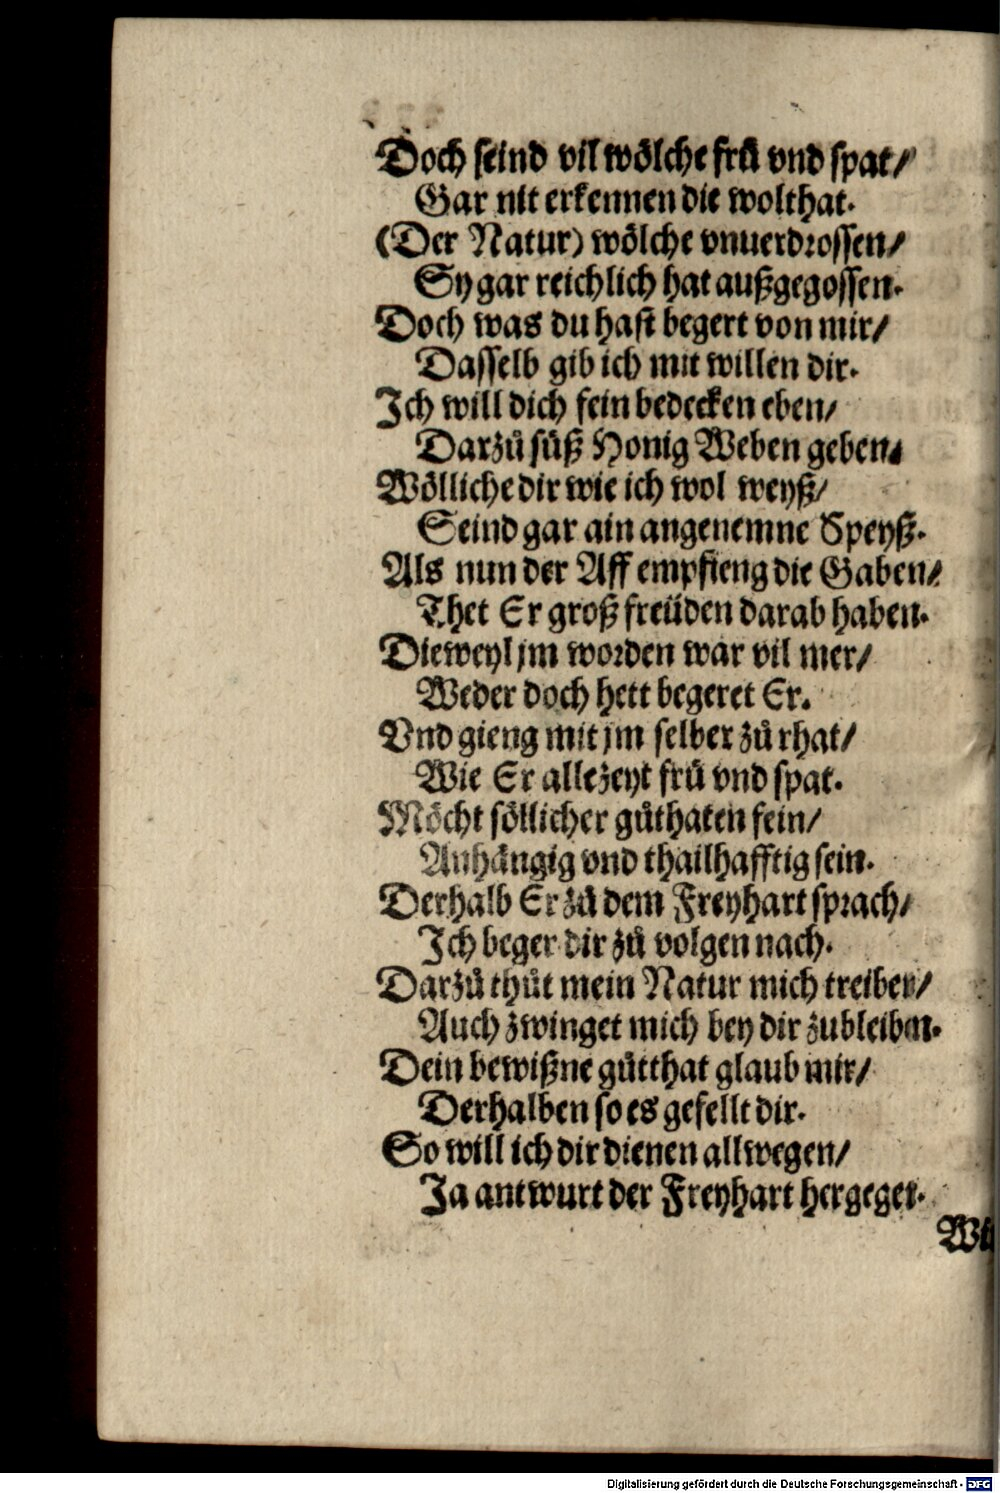 Doch seind vil wölche frů vnd spat/
Gar nit erkennen die wolthat.
(Der Natur) wölche vnuerdrossen/
Sy gar reichlich hat außgegossen.
Doch was du hast begert von mir/
Dasselb gib ich mit willen dir.
Ich will dich fein bedecken eben/
Darzů süß Honig Weben geben.
Wölliche dir wie ich wol weyß/
Seind gar ain angenemne Speyß.
Als nun der Aff empfieng die Gaben/
Thet Er groß freüden darab haben.
Dieweyl jm worden war vil mer/
Weder doch hett begeret Er.
Vnd gieng mit jm selber zů rhat/
Wie Er allezeyt frů vnd spat.
Möcht söllicher gůthaten fein/
Anhängig vnd thailhafftig sein.
Derhalb Er zů dem Freyhart sprach/
Ich beger dir zů volgen nach.
Darzů thůt mein Natur mich treiben/
Auch zwinget mich bey dir zubleiben.
Dein bewißne gůtthat glaub mir/
Derhalben so es gefellt dir.
So will ich dir dienen allwegen/
Ja antwurt der Freyhart hergegen.
Digitalisierung gefördert durch die Deutsche Forschungsgemeinschaft - DFG